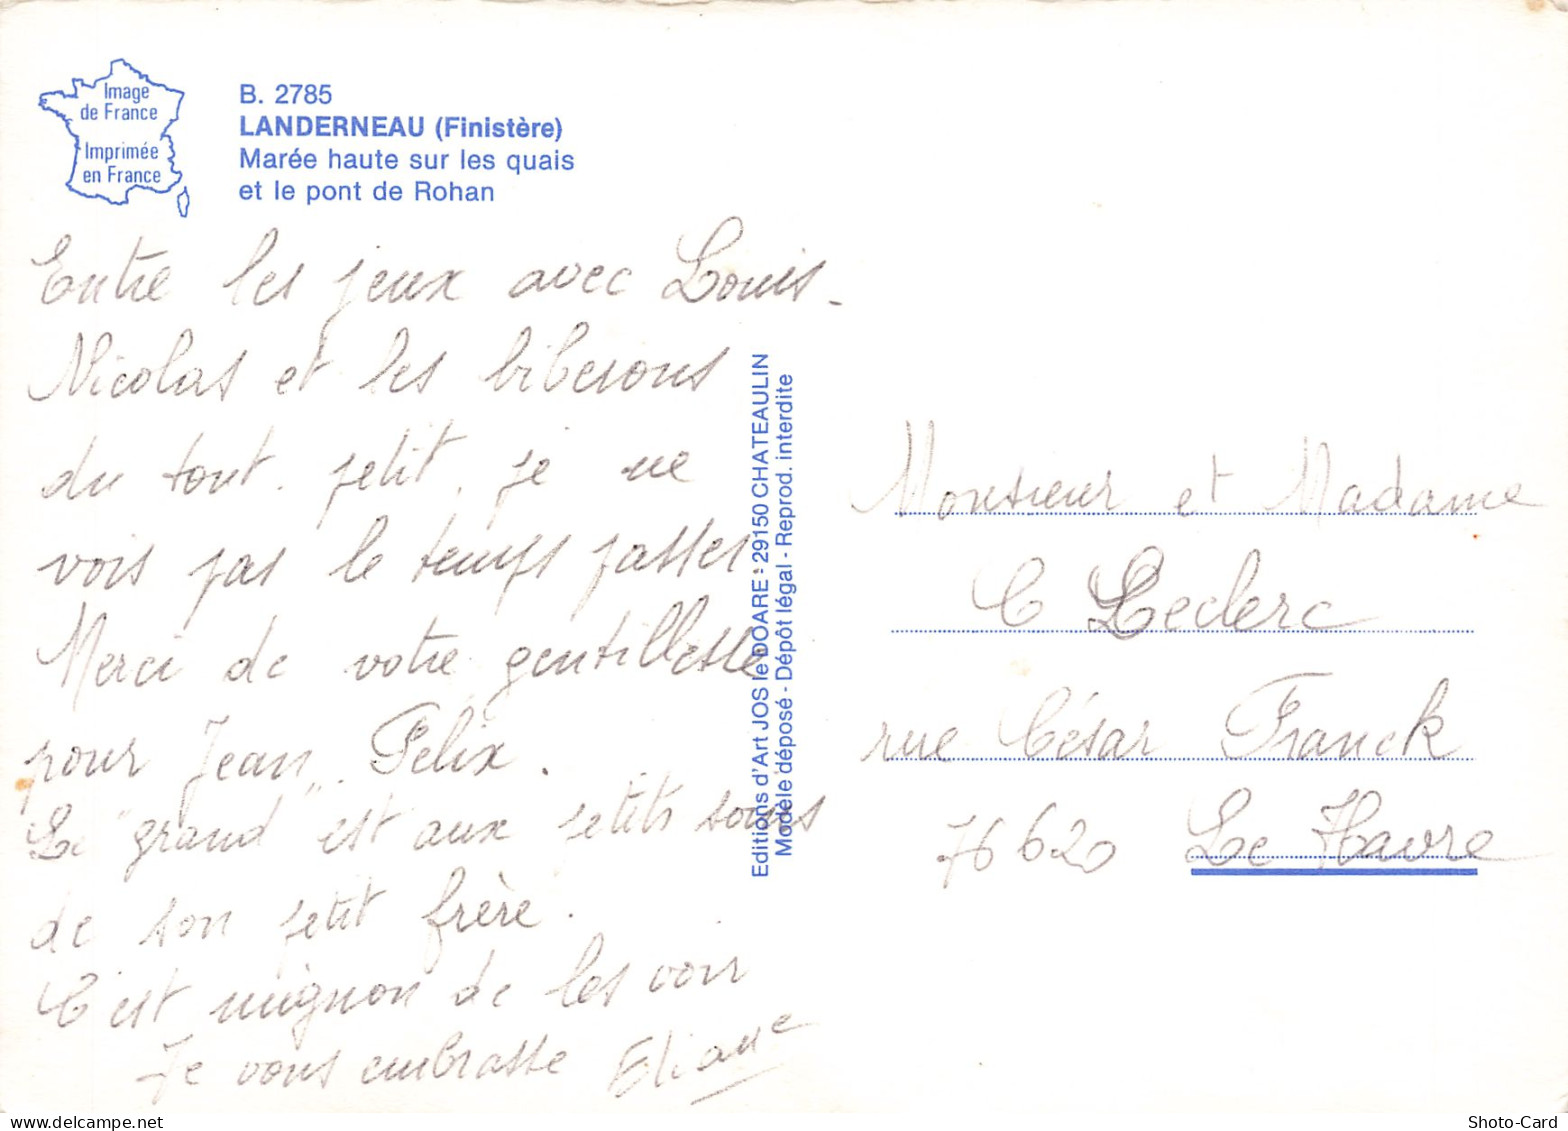 Image
de France
Imprimée
en France
B. 2785
LANDERNEAU (Finistère)
Marée haute sur les quais
et le pont de Rohan
Entre les jeux avec Louis-
Nicolas et les biberons
du tout. petit, je ne
vois pas le temps passer.
Merci de votre gentillesse
pour Jean. Félix.
Le "grand" est aux petits soins
de son petit frère.
C'est mignon de les voir
Je vous embrasse Eliane
Editions d'Art JOS le DOARE - 29150 CHATEAULIN
Modèle déposé - Dépôt légal - Reprod. interdite
Monsieur et Madame
C Leclerc
rue César Franck
76620 Le Havre
Shoto-Card